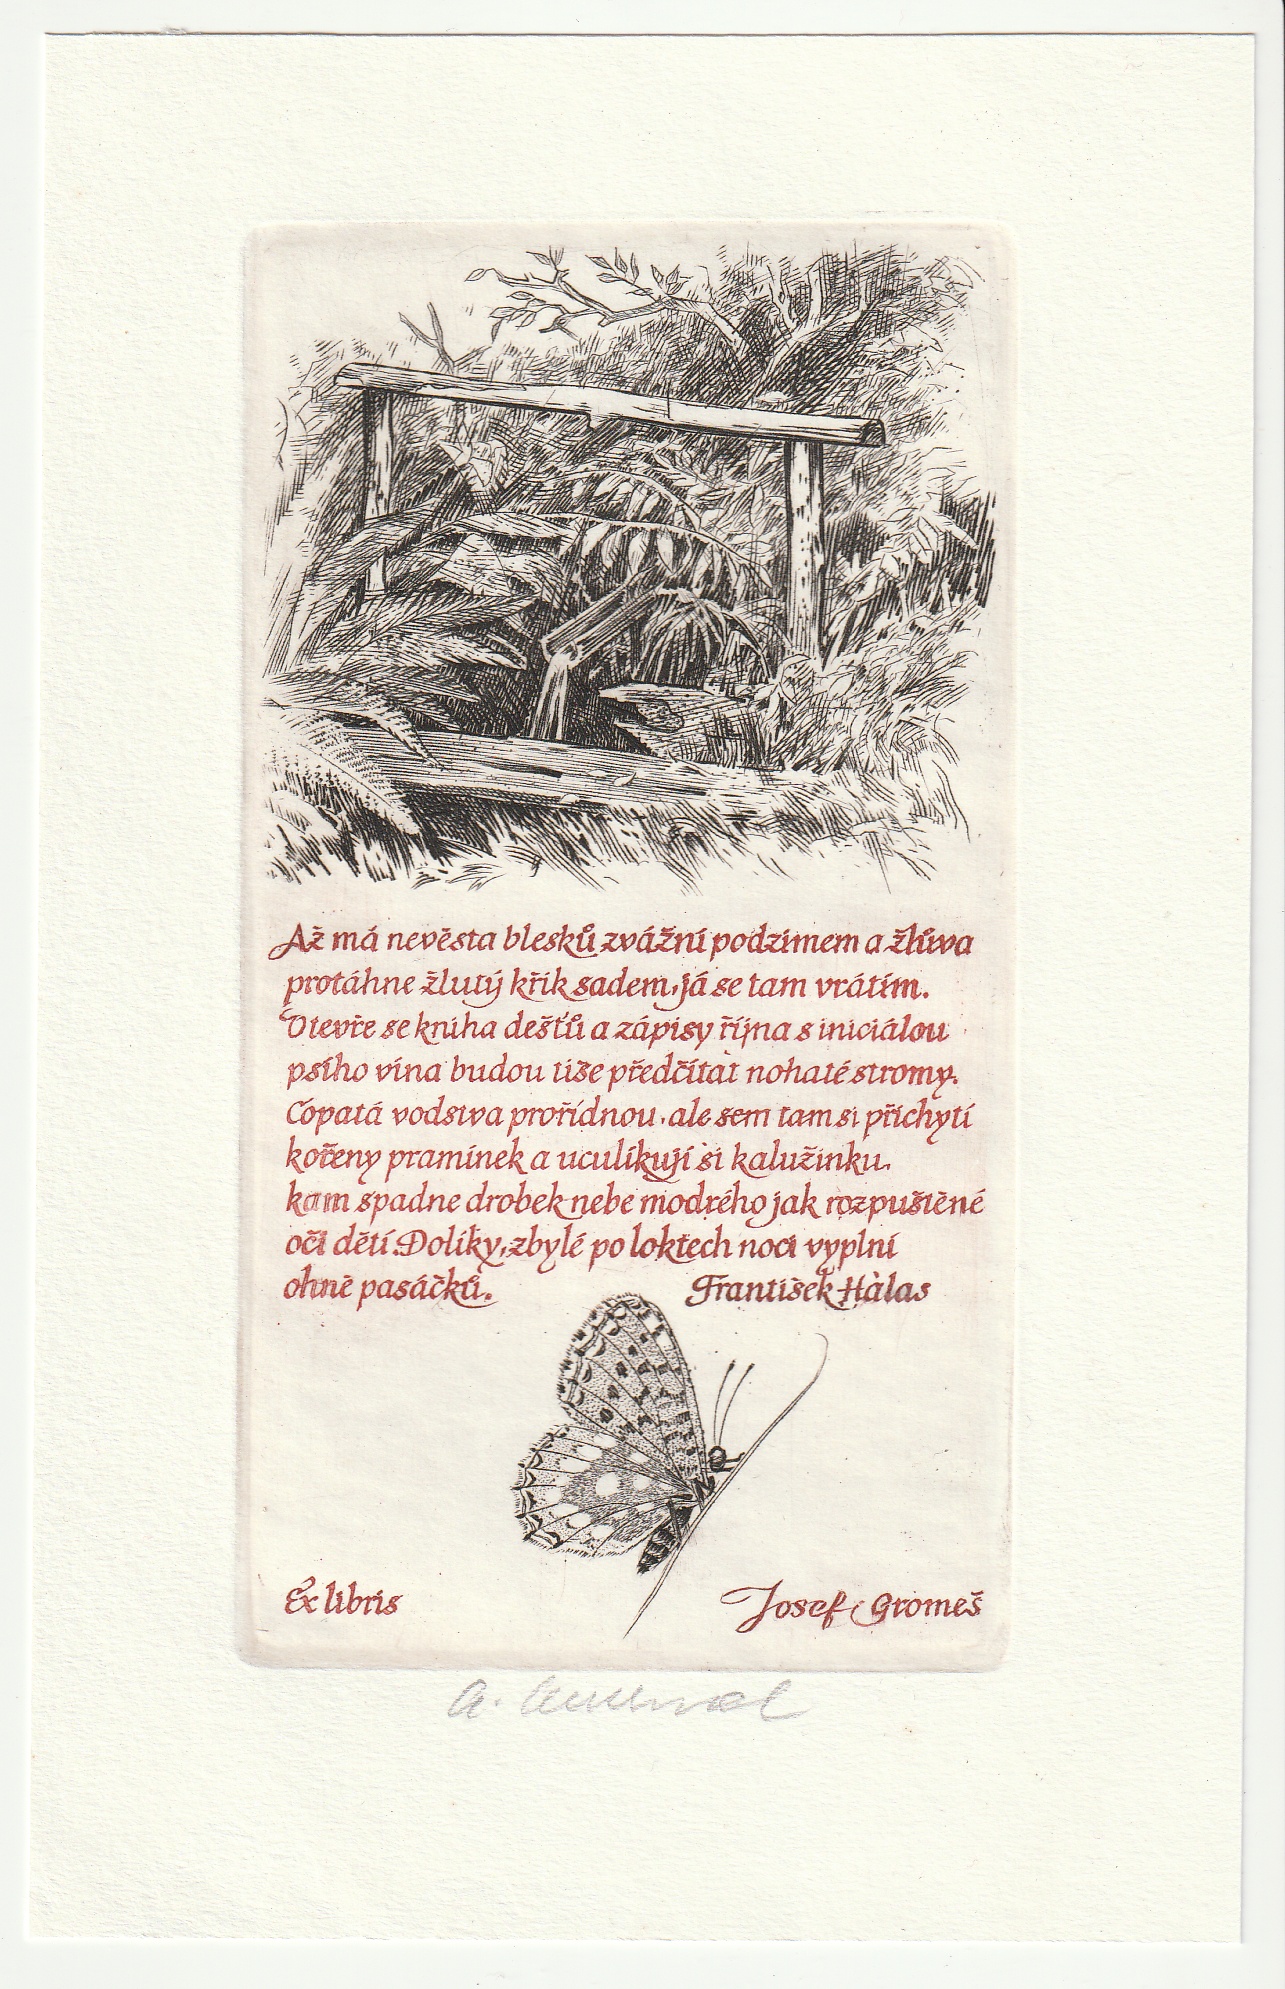 Až má nevěsta blesků zvážní podzimem a žlůva
protáhne žlutý křik sadem, já se tam vrátím.
Otevře se kniha dešťů a zápisy října s iniciálou
psího vína budou tiše předčítat nohaté stromy.
Copatá vodstva prořídnou, ale sem tam si přichytí
kořeny pramínek a uculíkují si kalužinku,
kam spadne drobek nebe modrého jak rozpuštěné
oči dětí. Dolíky, zbylé po loktech noci vyplní
ohně pasáčků.
František Hàlas
Ex libris
Josef Gromeš
A.